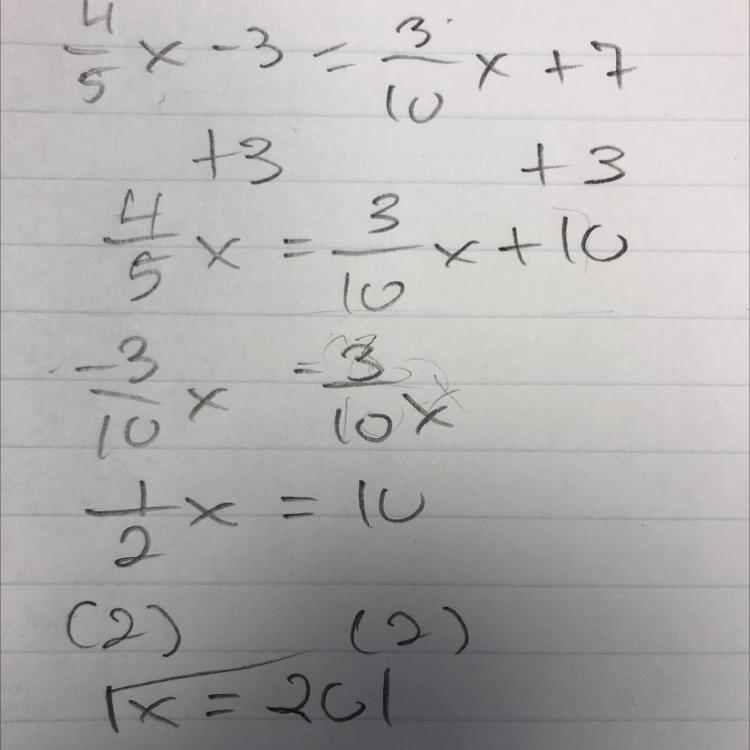 4/5 x - 3 = 3/10 x + 7
+3 +3
4/5 x = 3/10 x + 10
-3/10 x = 3/10 x
1/2 x = 10
(2) (2)
x = 20